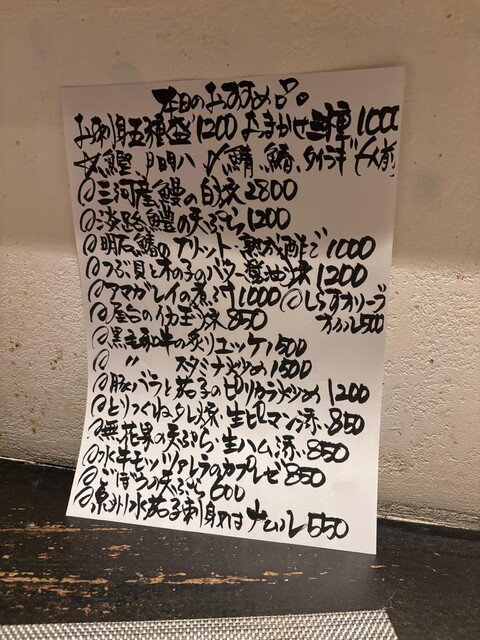 本日のおすすめ品。
お刺身五種盛1200 おまかせ三種1000
〆鯖、鰆、タイラギ (一人前)
@三河産鰻の白焼2800
@淡路鱧の天ぷら1200
@明石鰆のフリット・熟が酢で1000
@つぶ貝と木の子のバター醤油焼1200
@アマガレイの煮付1000 @しらすオリーブ
@屋台のイカ玉焼850 オイル500
@黒毛和牛の炙りユッケ1500
@ 〃 スタミナ炒め1500
@豚バラと茄子のピリカラ炒め1200
@とりつくねタレ焼・生ピーマン添850
@無花果の天ぷら・生ハム添850
@水牛モッツァレラのカプレーゼ850
@ごぼうの天ぷら600
@泉州水茄子刺身又はナムル550